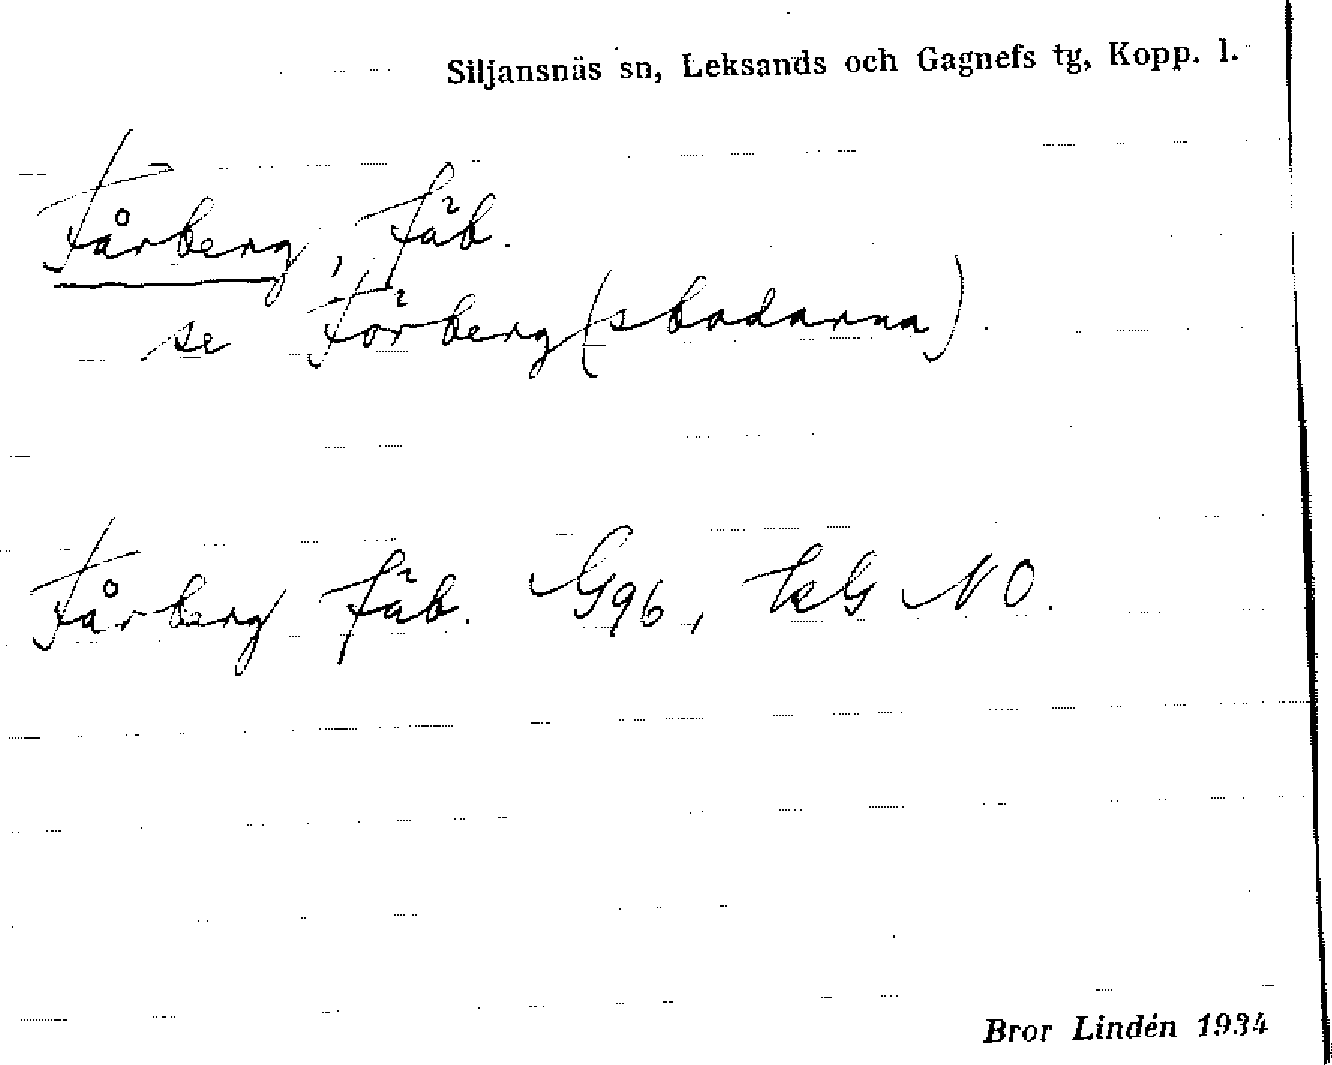 Siljansnäs sn, Leksands och Gagnefs tg, Kopp. l.
Fårberg, fäb.
se Förberg(sbodarna).
Fårberg fäb. G96, tkG NO.
Bror Lindén 1934